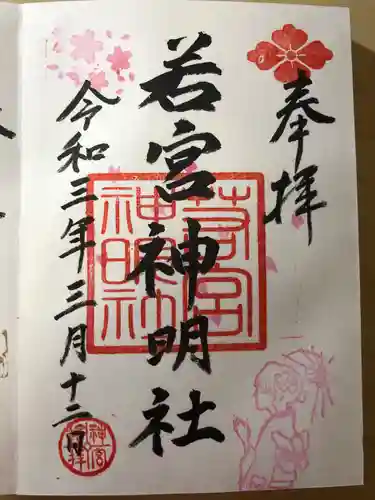 奉拝
若宮神明社
令和三年三月十二日
若宮
神明社